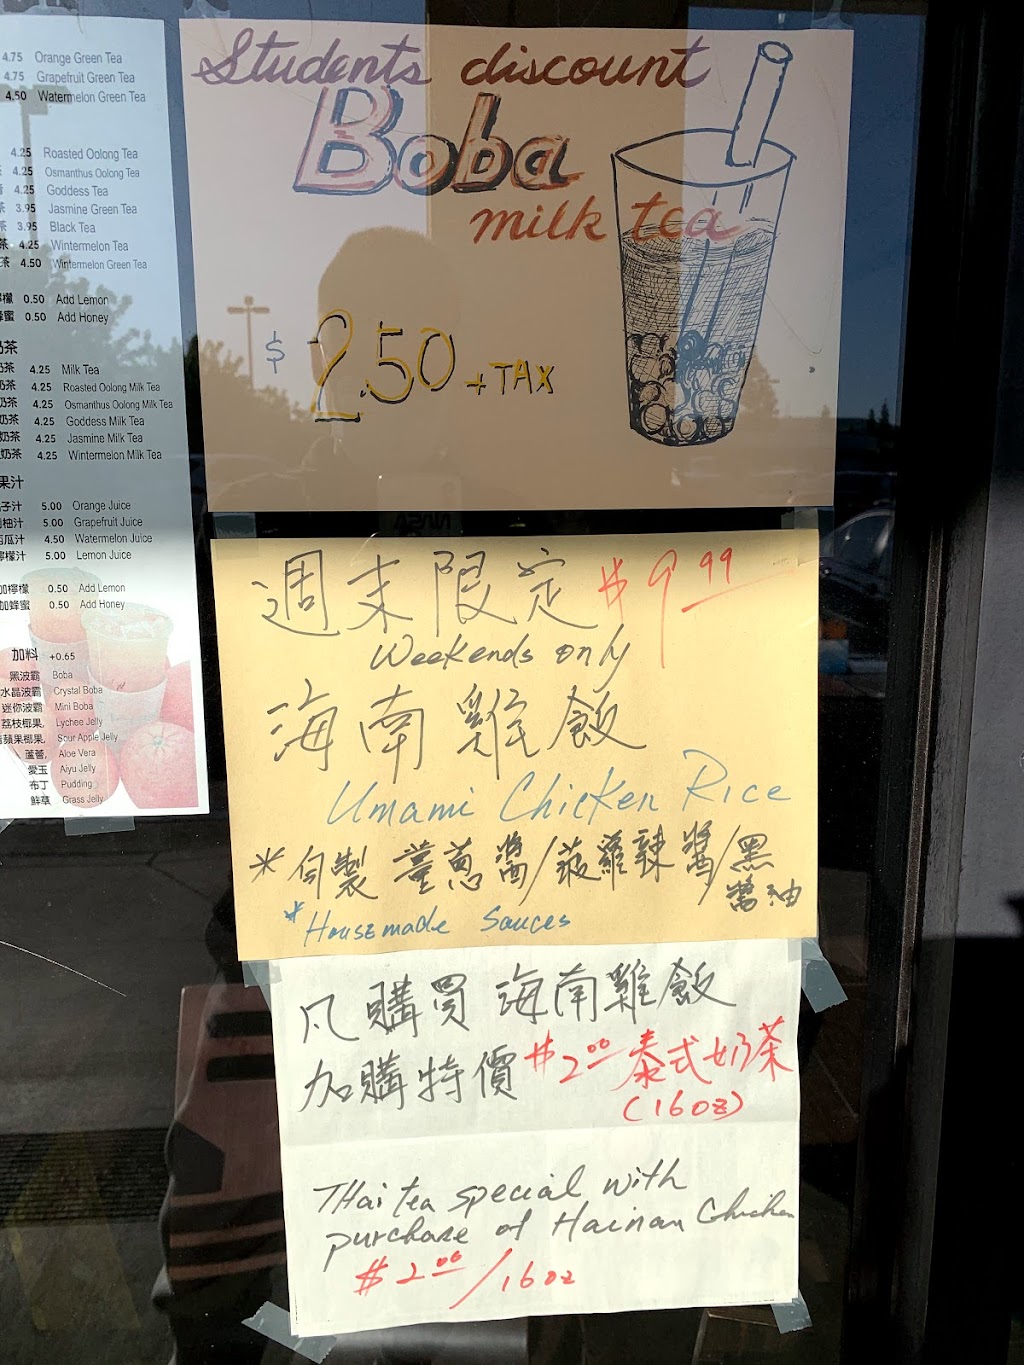 4.75 Orange Green Tea
4.75 Grapefruit Green Tea
4.50 Watermelon Green Tea
4.25 Roasted Oolong Tea
4.25 Osmanthus Oolong Tea
4.25 Goddess Tea
3.95 Jasmine Green Tea
3.95 Black Tea
4.25 Wintermelon Tea
4.50 Wintermelon Green Tea
檬 0.50 Add Lemon
蜜 0.50 Add Honey
奶茶
奶茶 4.25 Milk Tea
奶茶 4.25 Roasted Oolong Milk Tea
奶茶 4.25 Osmanthus Oolong Milk Tea
奶茶 4.25 Goddess Milk Tea
奶茶 4.25 Jasmine Milk Tea
奶茶 4.25 Wintermelon Milk Tea
果汁
子汁 5.00 Orange Juice
柚汁 5.00 Grapefruit Juice
瓜汁 4.50 Watermelon Juice
檬汁 5.00 Lemon Juice
加檸檬 0.50 Add Lemon
加蜂蜜 0.50 Add Honey
加料 +0.65
黑波霸 Boba
水晶波霸 Crystal Boba
迷你波霸 Mini Boba
荔枝椰果, Lychee Jelly
青蘋果椰果, Sour Apple Jelly
蘆薈, Aloe Vera
愛玉 Aiyu Jelly
布丁 Pudding
鮮草 Grass Jelly
Students discount
Boba
milk tea
$2.50 + TAX
週末限定 $9.99
Weekends only
海南雞飯
Umami Chicken Rice
*自製 薑蔥醬/菠蘿辣醬/黑醬油
*Housemade Sauces
凡購買海南雞飯
加購特價 $2.00 泰式奶茶
(16oz)
THai tea special with
purchase of Hainan Chicken
$2.00/16oz